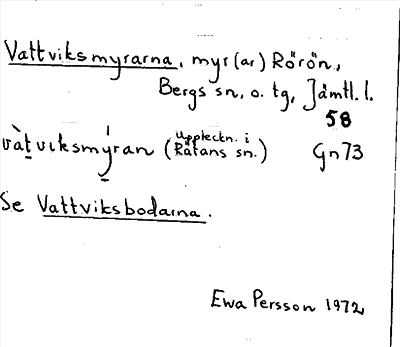 Vattviksmyrarna, myr(ar) Rörön,
Bergs sn, o. tg, Jämtl. l.
58
vàt̲viksmýran (Uppteckn. i Rätans sn.) Gn73
Se Vattviksbodarna.
Ewa Persson 1972